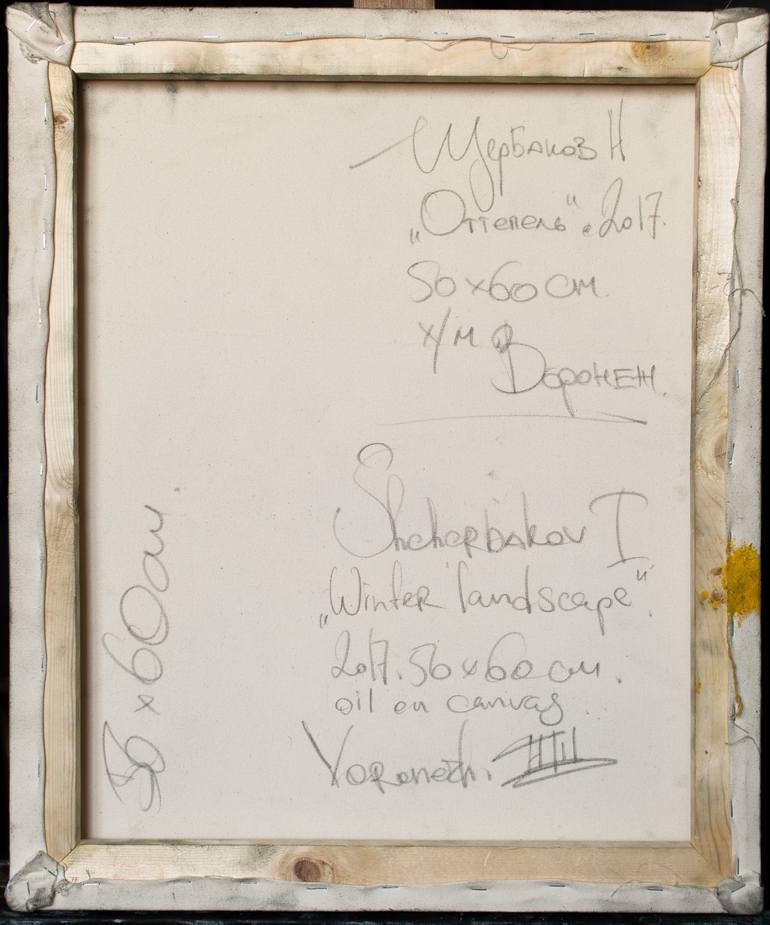 Щербаков И
„Оттепель". 2017.
50х60 см.
х/м
Воронеж.
Shcherbakov I
„Winter landscape".
2017. 50x60 см.
oil on canvas
Voronezh.
50x60см.